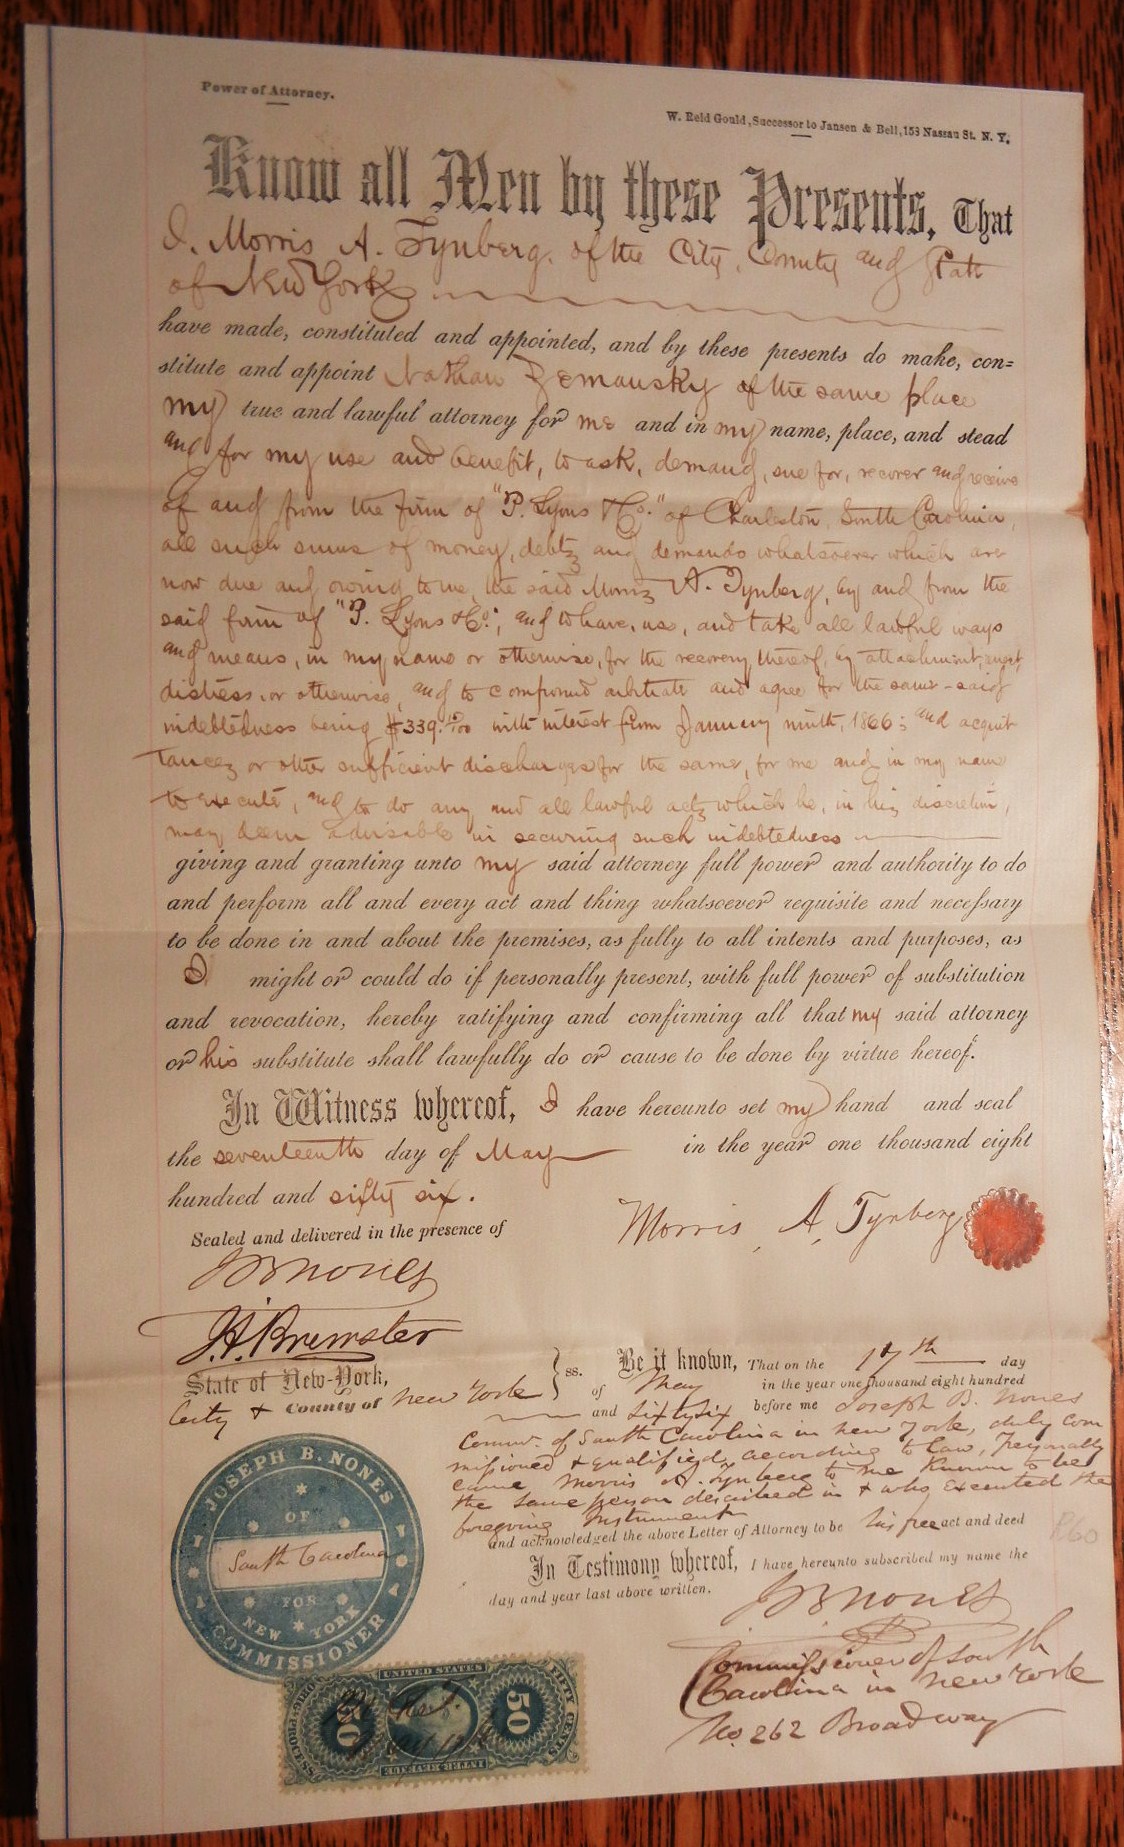 Power of Attorney.
W. Reid Gould, Successor to Jansen & Bell, 153 Nassau St. N. Y.
Know all Men by these Presents, That
I, Morris A. Tynberg, of the City, County and State
of New York
have made, constituted and appointed, and by these presents do make, con=
stitute and appoint Nathan Zemansky of the same place
my true and lawful attorney for me and in my name, place, and stead
and for my use and benefit, to ask, demand, sue for, recover and receive
of and from the firm of "P. Lyons & Co." of Charleston, South Carolina,
all such sums of money, debts and demands whatsoever which are
now due and owing to me, the said Morris A. Tynberg, by and from the
said firm of "P. Lyons & Co.", and to have, use, and take all lawful ways
and means, in my name or otherwise, for the recovery thereof, by attachment, arrest,
distress, or otherwise, and to compound arbitrate and agree for the same - said
indebtedness being $339. /100 with interest from January ninth, 1866; and acquit
tances or other sufficient discharges for the same, for me and in my name
to execute, and to do any and all lawful acts which he, in his discretion,
may deem advisable in securing such indebtedness
giving and granting unto my said attorney full power and authority to do
and perform all and every act and thing whatsoever requisite and necessary
to be done in and about the premises, as fully to all intents and purposes, as
I might or could do if personally present, with full power of substitution
and revocation, hereby ratifying and confirming all that my said attorney
or his substitute shall lawfully do or cause to be done by virtue hereof.
In Witness whereof, I have hereunto set my hand and seal
the seventeenth day of May in the year one thousand eight
hundred and sixty six.
Sealed and delivered in the presence of
Morris A. Tynberg
J B Nones
J. H. Brewster
State of New-York,
City & County of New York } ss.
Be it known, That on the 17th day
of May in the year one thousand eight hundred
and sixty six before me Joseph B. Nones
Commr. of South Carolina in New York, duly com
missioned & qualified, according to law, Personally
came Morris A. Tynberg to me known to be
the same person described in & who executed the
foregoing Instrument
and acknowledged the above Letter of Attorney to be his free act and deed
In Testimony whereof, I have hereunto subscribed my name the
day and year last above written.
J B Nones
Commissioner of South
Carolina in New York
No. 262 Broadway
JOSEPH B. NONES
OF
South Carolina
FOR
NEW YORK
COMMISSIONER
UNITED STATES
50
50
FIFTY CENTS
INTER. REVENUE